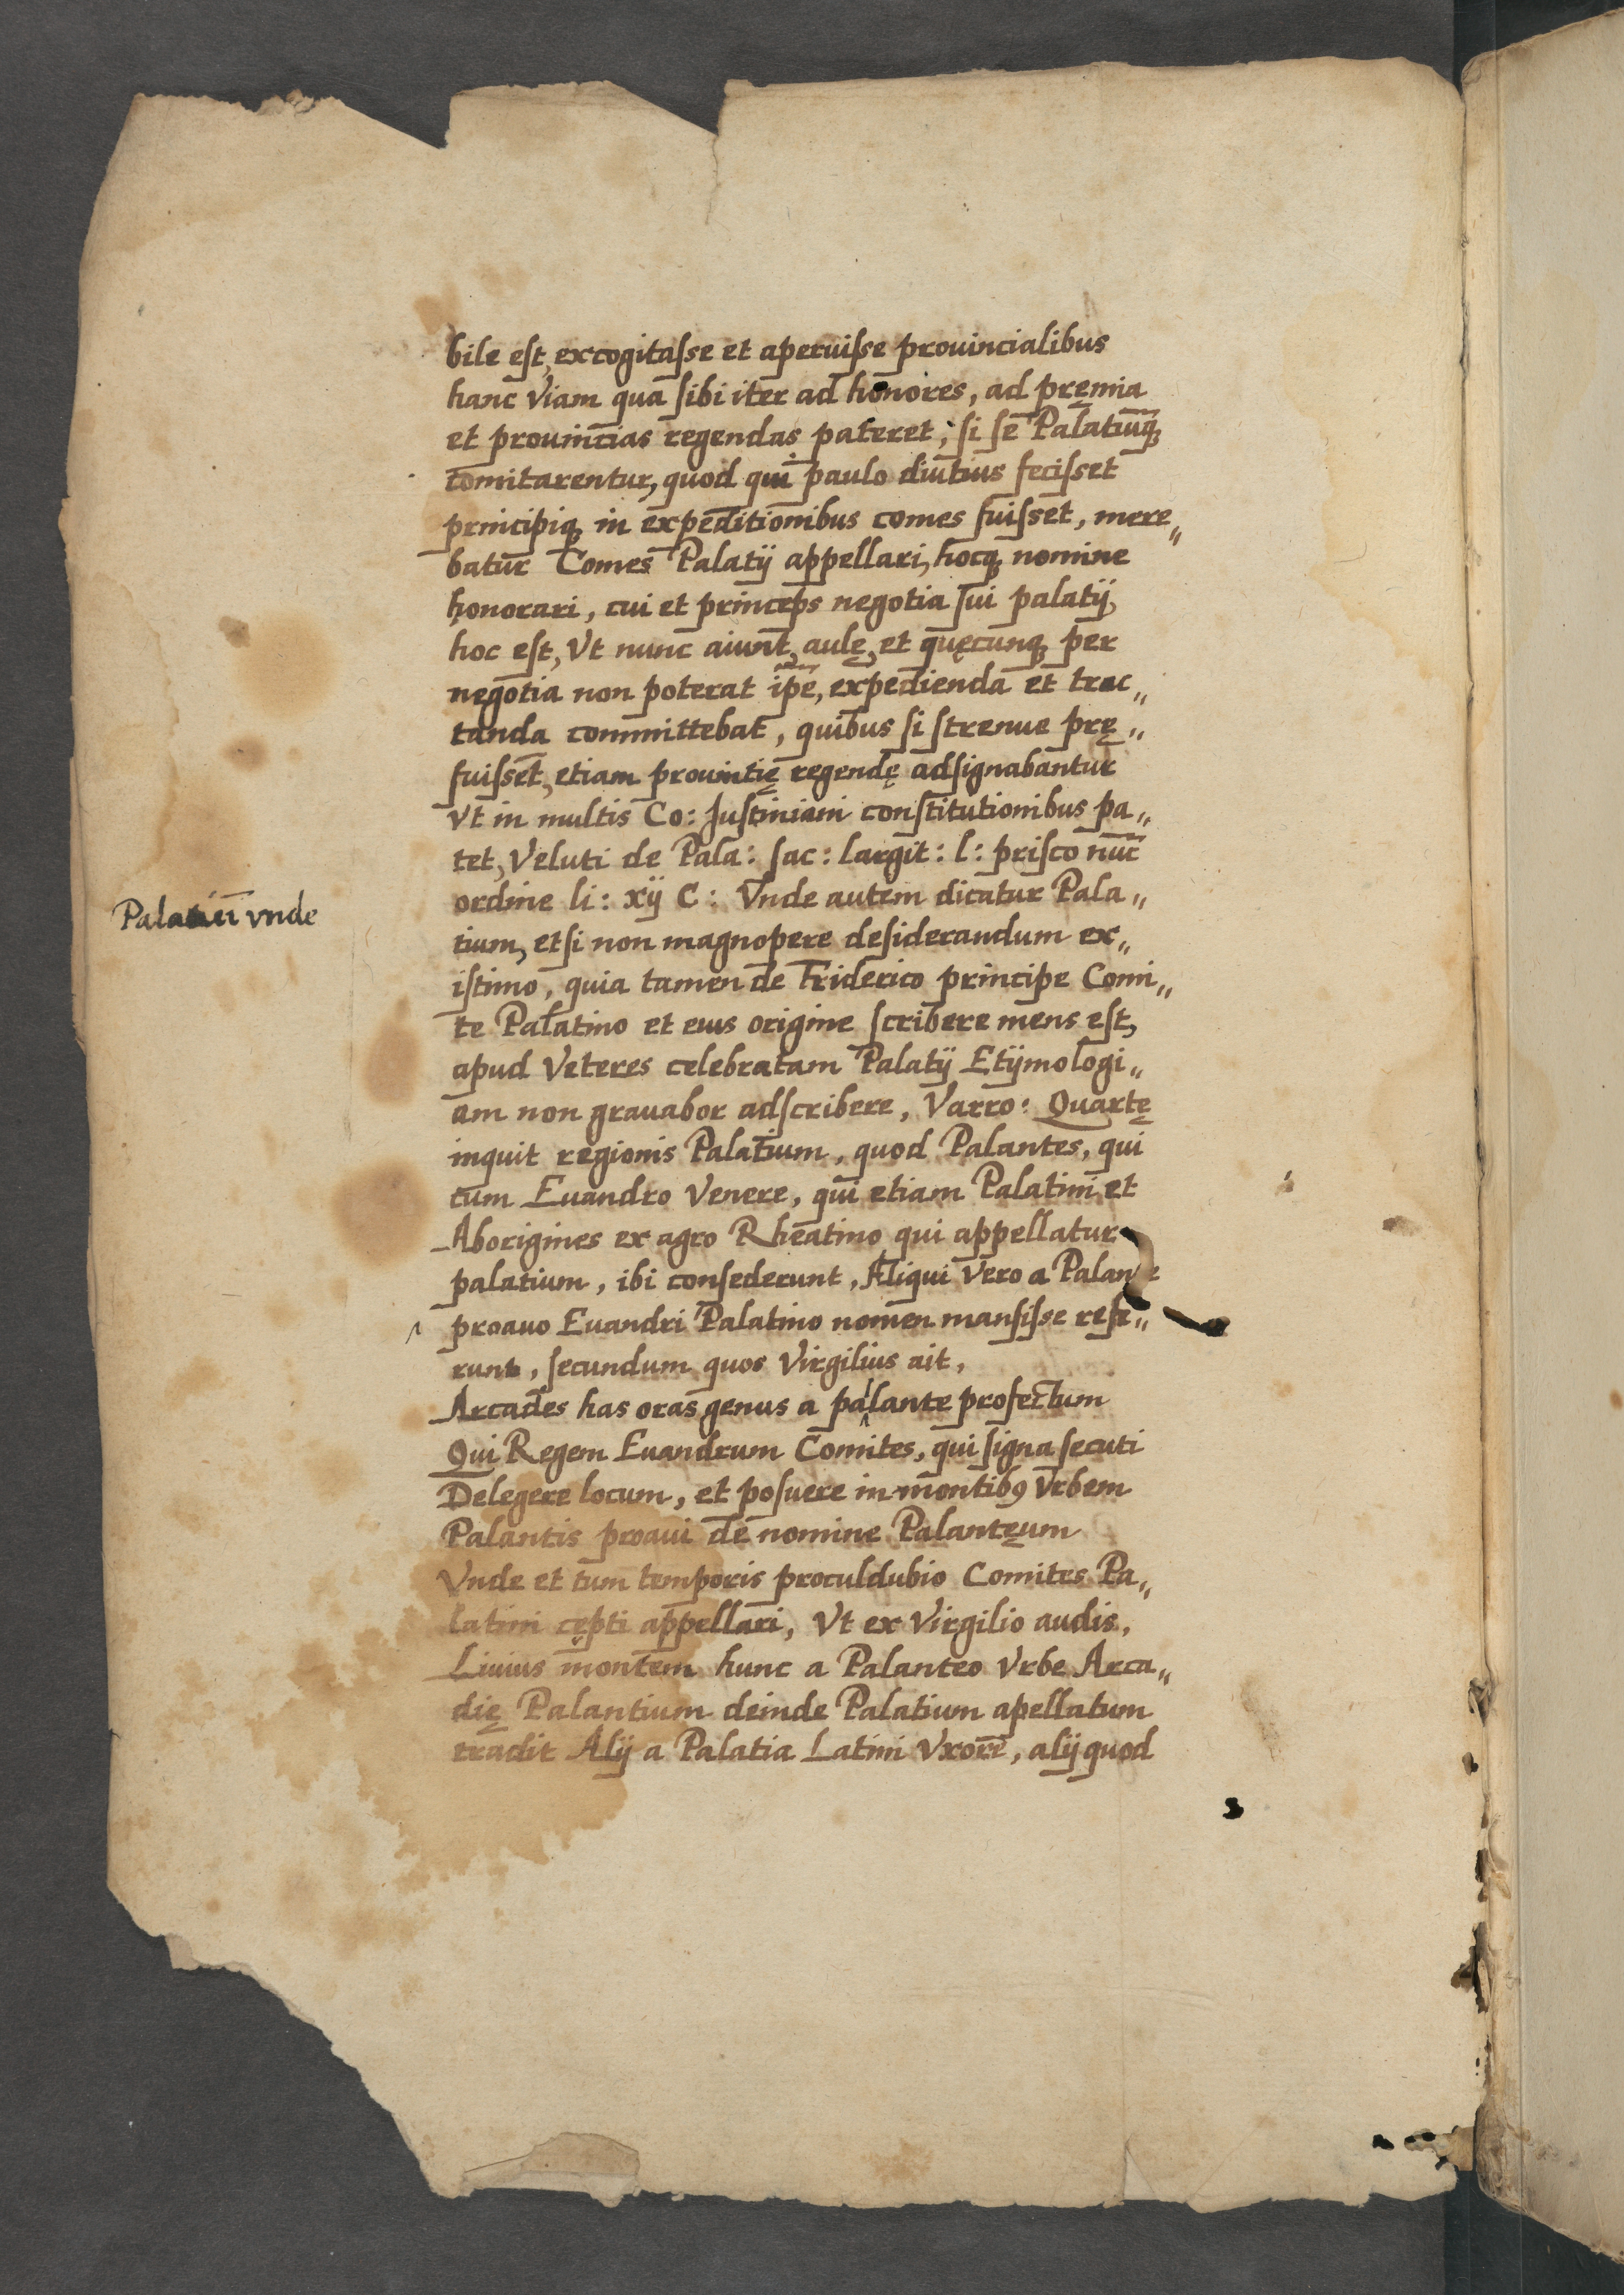 bile est, excogitasse et aperuisse prouincialibus
hanc Viam qua sibi iter ad honores, ad pręmia
et prouincias regendas pateret, si se Palatiūq;
comitarentur, quod qui paulo diutius fecisset
principiq; in expeditionibus comes fuisset, mere„
batur Comes Palatij appellari, hocq; nomine
honorari, cui et princeps negotia sui palatij,
hoc est, Vt nunc aiunt, aulę, et quęcunq; per
negotia non poterat ip̃e, expedienda et trac„
tanda committebat, quibus si strenue prę„
fuisset, etiam prouintię regendę adsignabantur
Vt in multis Co: Justiniani constitutionibus pa„
tet, Veluti de Pala: sac: largit: l: prisco nūc
Palatiū vnde
ordine li: xij C: Vnde autem dicatur Pala„
tium, etsi non magnopere desiderandum ex„
istimo, quia tamen de Friderico principe Comi„
te Palatino et eius origine scribere mens est,
apud Veteres celebratam Palatij Etÿmologi„
am non grauabor adscribere, Varro: Quartę
inquit regionis Palatium, quod Palantes, qui
cum Euandro Venere, qui etiam Palatini et
Aborigines ex agro Rheatino qui appellatur
palatium, ibi consederunt, Aliqui Vero a Palante
proauo Euandri Palatino nomen mansisse refe„
runt, secundum quos Virgilius ait,
Arcades has oras genus a palante profectum
Qui Regem Euandrum Comites, qui signa secuti
Delegere locum, et posuere in montib9 Vrbem
Palantis proaui de nomine Palantęum
Vnde et tum temporis proculdubio Comites Pa„
latini cępti appellari, Vt ex Virgilio audis,
Liuius montem hunc a Palanteo Vrbe Arca„
dię Palantium deinde Palatium apellatum
tradit Alij a Palatia Latini Vxore, alij quod